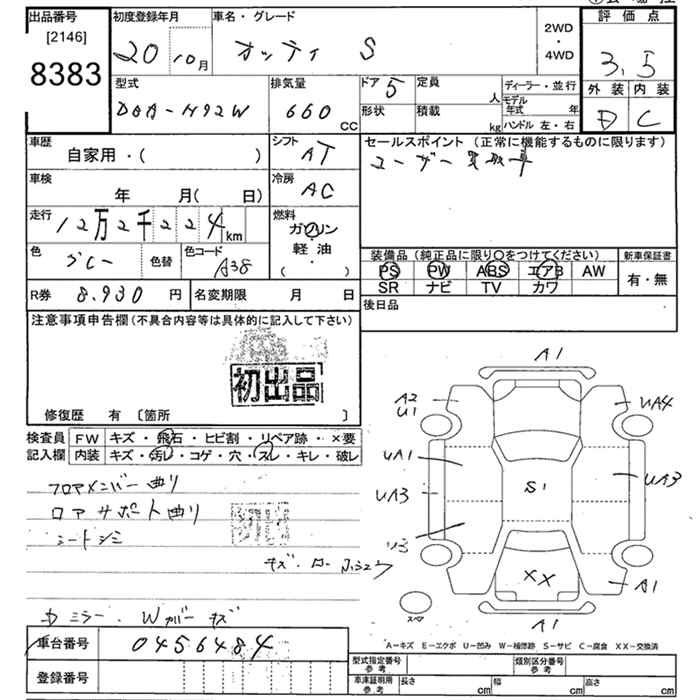 出品番号
[2146]
8383
初度登録年月
20 10月
車名・グレード
オッティ S
2WD
・
4WD
評価点
3.5
外装 内装
D C
型式
DBA-H92W
排気量
660 CC
ドア 5
形状
定員 人
積載 kg
ディーラー・並行
モデル年式 年
ハンドル 左・右
車歴
自家用・( )
シフト
AT
セールスポイント (正常に機能するものに限ります)
ユーザー買取車
車検
年 月( 日)
冷房
AC
走行
12万2千224km
燃料
ガソリン
軽油
( )
色
グレー
色替
色コード
A38
装備品 (純正品に限り○をつけてください)
PS PW ABS エアB AW
SR ナビ TV カワ
新車保証書
有・無
R券 8.930 円
名変期限 月 日
後日品
注意事項申告欄(不具合内容等は具体的に記入して下さい)
初出品
修復歴 有 〔箇所 〕
検査員記入欄
FW キズ・飛石・ヒビ割・リペア跡・×要
内装 キズ・汚レ・コゲ・穴・スレ・キレ・破レ
フロアメンバー曲り
ロアサポート曲り
シートシミ
Wカバー キズ
A1
A2
U1
UA4
UA1
UA3
S1
UA3
U3
XX
A1
スペア
A1
A-キズ E-エクボ U-凹み W-補修跡 S-サビ C-腐食 XX-交換済
車台番号 0456484
登録番号
型式指定番号参考
類別区分番号参考
車庫証明用参考
長さ cm 幅 cm 高さ cm